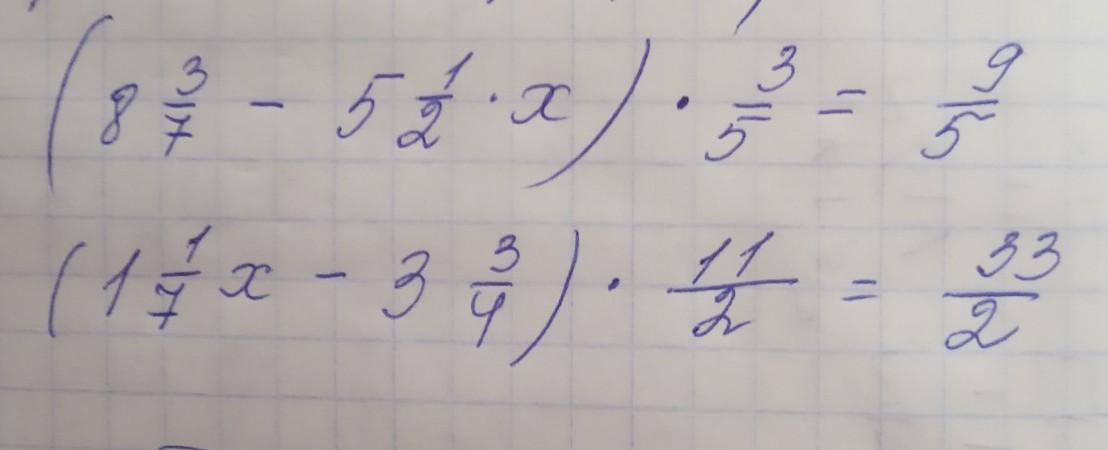 (8 3/7 - 5 1/2 · x) · 3/5 = 9/5
(1 1/7 x - 3 3/4) · 11/2 = 33/2